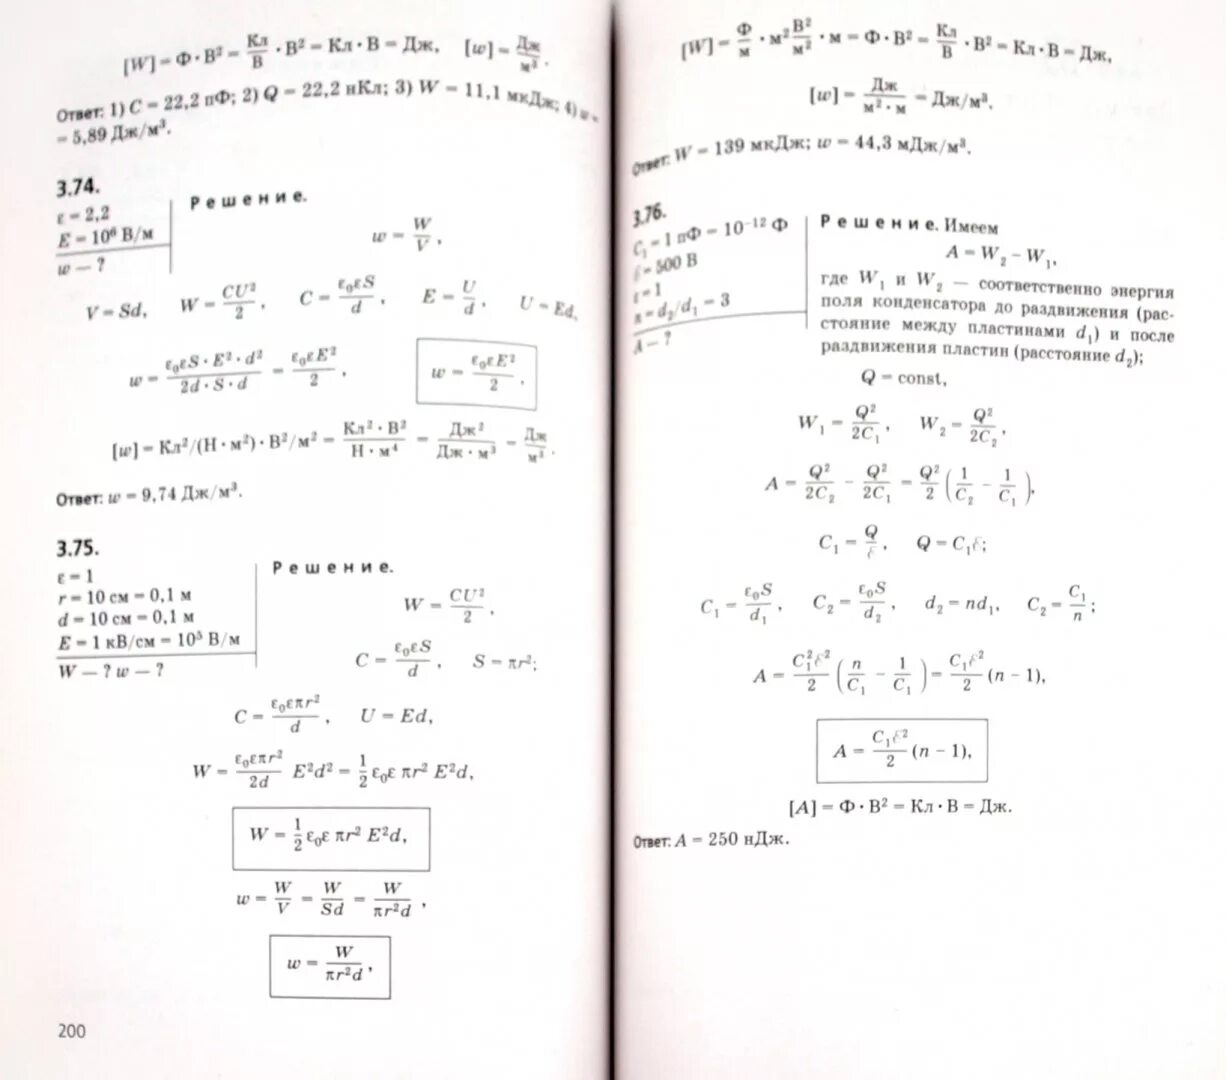 [W] = Ф · В² = Кл/В · В² = Кл · В = Дж, [w] = Дж/м³.
Ответ: 1) C = 22,2 пФ; 2) Q = 22,2 нКл; 3) W = 11,1 мкДж; 4) w =
= 5,89 Дж/м³.
3.74.
ε = 2,2
E = 10⁶ В/м
w — ?
Решение.
w = W/V,
V = Sd, W = CU²/2, C = ε₀εS/d, E = U/d, U = Ed,
w = ε₀εS · E² · d²/2d · S · d = ε₀εE²/2, w = ε₀εE²/2,
[w] = Кл²/(Н · м²) · В²/м² = Кл² · В²/Н · м⁴ = Дж²/Дж · м³ = Дж/м³.
Ответ: w = 9,74 Дж/м³.
3.75.
ε = 1
r = 10 см = 0,1 м
d = 10 см = 0,1 м
E = 1 кВ/см = 10⁵ В/м
W — ? w — ?
Решение.
W = CU²/2,
C = ε₀εS/d, S = πr²;
C = ε₀επr²/d, U = Ed,
W = ε₀επr²/2d E²d² = 1/2 ε₀ε πr² E²d,
W = 1/2 ε₀ε πr² E²d,
w = W/V = W/Sd = W/πr²d,
w = W/πr²d,
200
[W] = Ф/м · м² В²/м² · м = Ф · В² = Кл/В · В² = Кл · В = Дж,
[w] = Дж/м² · м = Дж/м³.
Ответ: W = 139 мкДж; w = 44,3 мДж/м³.
3.76.
C₁ = 1 пФ = 10⁻¹² Ф
ℰ = 500 В
ε = 1
n = d₂/d₁ = 3
A — ?
Решение. Имеем
A = W₂ − W₁,
где W₁ и W₂ — соответственно энергия
поля конденсатора до раздвижения (рас-
стояние между пластинами d₁) и после
раздвижения пластин (расстояние d₂);
Q = const,
W₁ = Q²/2C₁, W₂ = Q²/2C₂,
A = Q²/2C₂ − Q²/2C₁ = Q²/2 (1/C₂ − 1/C₁),
C₁ = Q/ℰ, Q = C₁ℰ;
C₁ = ε₀S/d₁, C₂ = ε₀S/d₂, d₂ = nd₁, C₂ = C₁/n;
A = C₁²ℰ²/2 (n/C₁ − 1/C₁) = C₁ℰ²/2 (n − 1),
A = C₁ℰ²/2 (n − 1),
[A] = Ф · В² = Кл · В = Дж.
Ответ: A = 250 нДж.